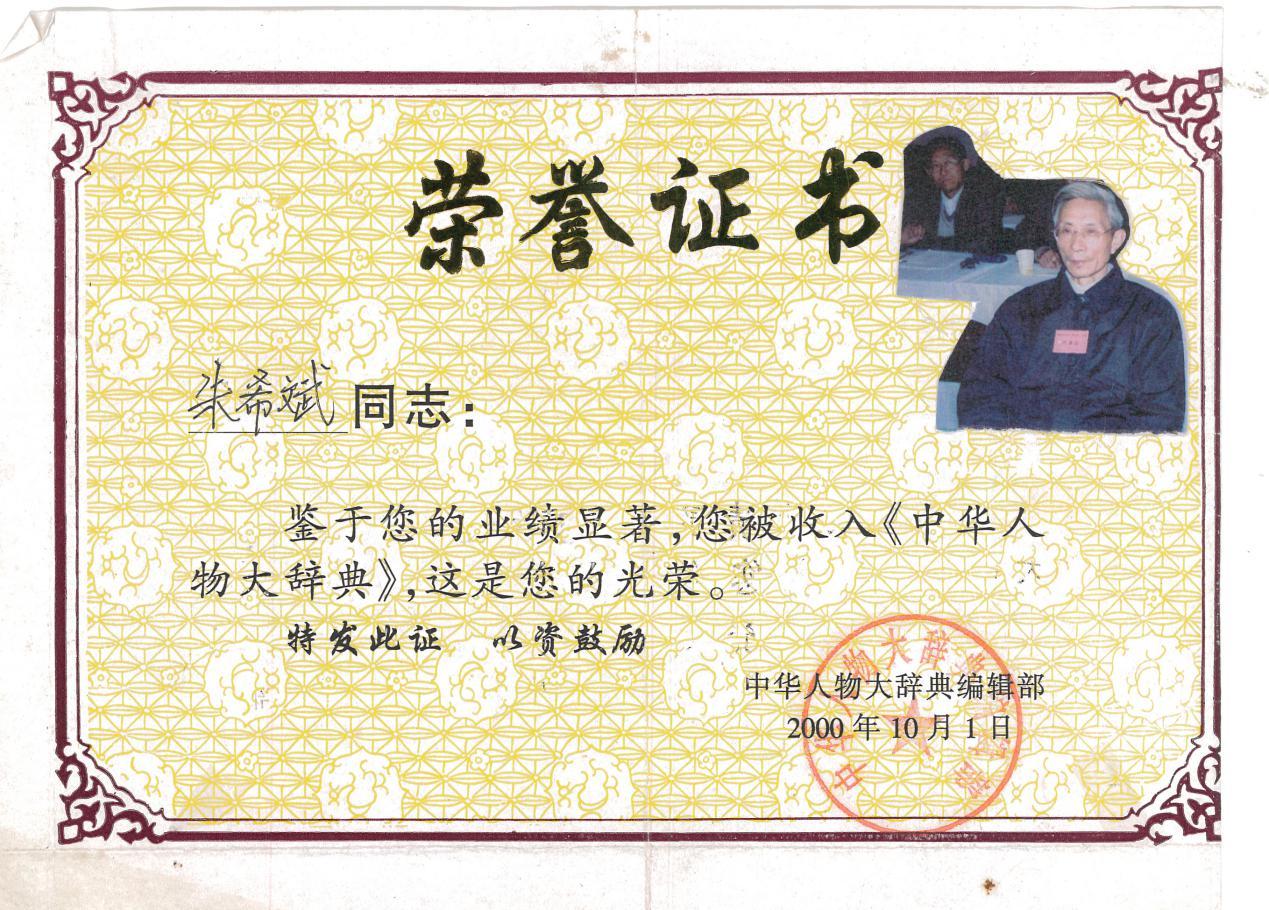 荣誉证书
朱希斌同志:
鉴于您的业绩显著,您被收入《中华人
物大辞典》,这是您的光荣。
特发此证 以资鼓励
中华人物大辞典编辑部
2000年10月1日
中华人物大辞典编辑部